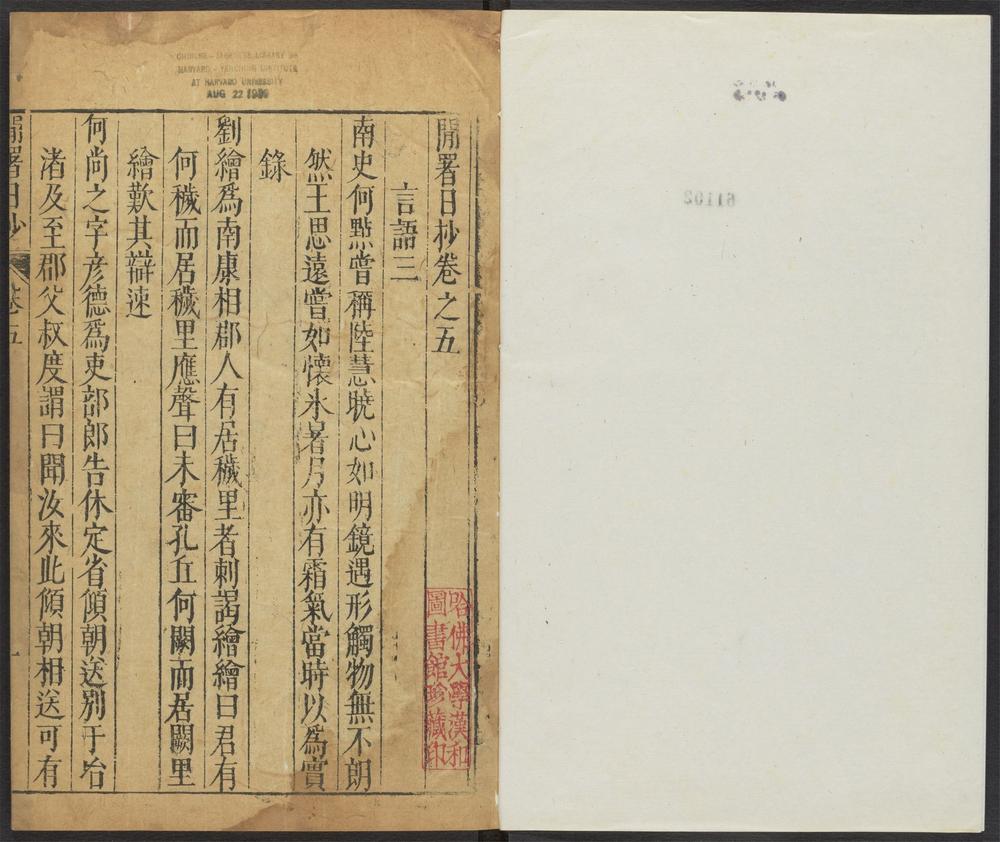 61102
閒署日抄卷之五
言語三
南史何㸃嘗稱陸慧曉心如明鏡遇形觸物無不朗
然王思遠嘗如懷氷暑月亦有霜氣當時以為實
錄
劉繪爲南康相郡人有居穢里者刺謁繪繪曰君有
何穢而居穢里應聲曰未審孔丘何闕而居闕里
繪歎其辯速
何尚之字彦德爲吏部郎告休定省傾朝送别于冶
渚及至郡父叔度謂曰聞汝來此傾朝相送可有
閒署日抄 卷五 一
哈佛大學漢和
圖書館珍藏印
CHINESE-JAPANESE LIBRARY OF
HARVARD-YENCHING INSTITUTE
AT HARVARD UNIVERSITY
AUG 22 1939